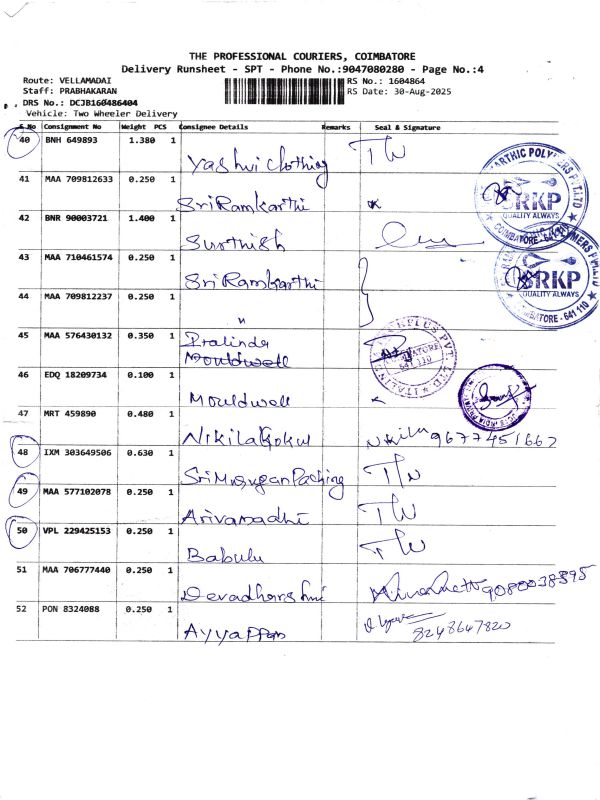 THE PROFESSIONAL COURIERS, COIMBATORE
Delivery Runsheet - SPT - Phone No.:9047080280 - Page No.:4
Route: VELLAMADAI RS No.: 1604864
Staff: PRABHAKARAN RS Date: 30-Aug-2025
DRS No.: DCJB160486404
Vehicle: Two Wheeler Delivery
S.No Consignment No Weight PCS Consignee Details Remarks Seal & Signature
40 BNH 649893 1.380 1 Yashvi Clothing TW
41 MAA 709812633 0.250 1 Sri Ramkarthi
42 BNR 90003721 1.400 1 Surthish
43 MAA 710461574 0.250 1 Sri Ramkarthi
44 MAA 709812237 0.250 1 "
45 MAA 576430132 0.350 1 Pralinda
Mouldwell
46 EDQ 18209734 0.100 1 Mouldwell
47 MRT 459890 0.480 1 Nikila Gokul Nikila 9677451662
48 IXM 303649506 0.630 1 Sri Murugan Packing TW
49 MAA 577102078 0.250 1 Arivamadhi TW
50 VPL 229425153 0.250 1 Babulu TW
51 MAA 706777440 0.250 1 Devadharshni 9080038895
52 PON 8324088 0.250 1 Ayyappan 8248647820
SRKP
QUALITY ALWAYS
COIMBATORE - 641 110
SRKP
QUALITY ALWAYS
COIMBATORE - 641 110
COIMBATORE
641 110